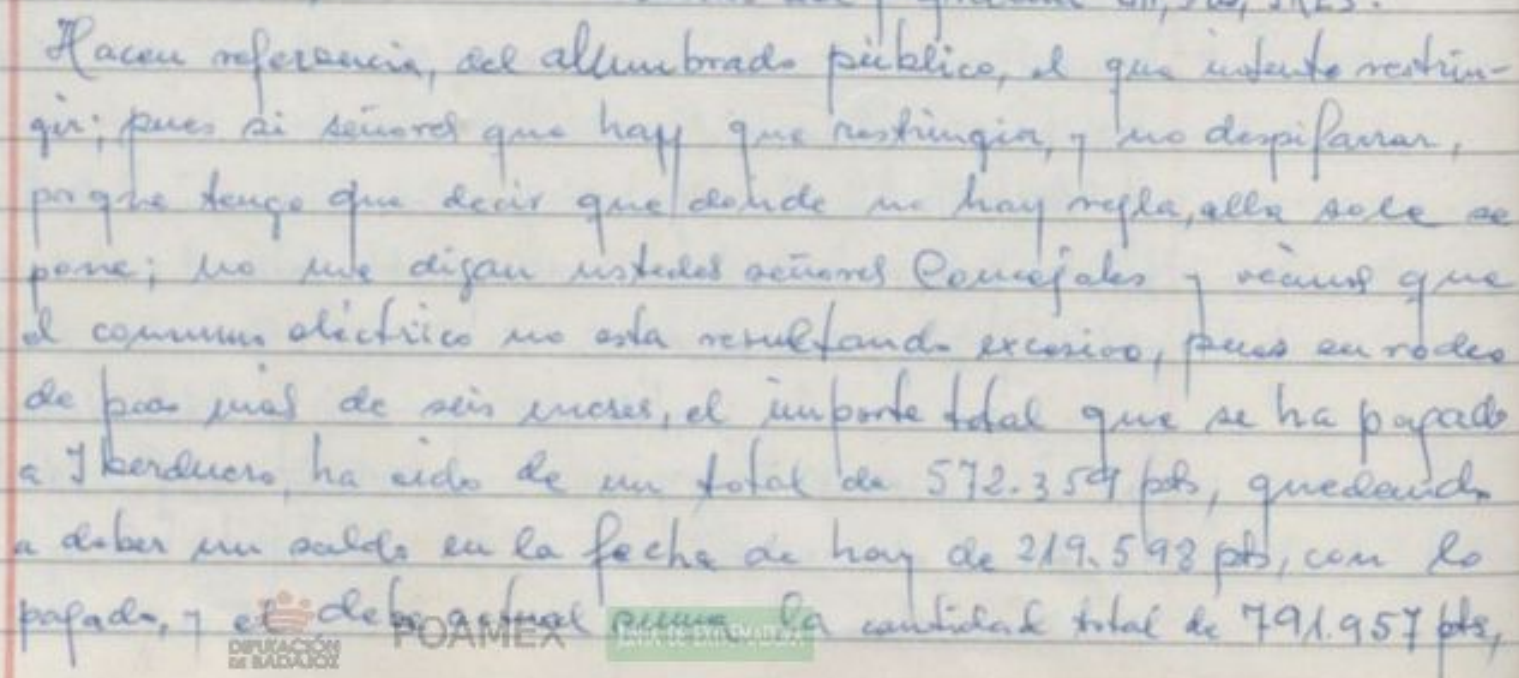 Hacen referencia, del allumbrado público, el que intento restrin-
gir; pues si señores que hay que restringir, y no despifarrar,
porque tengo que decir que donde no hay regla, alla sole se
pone; no me digan ustedes señores Concejales y vecinos que
el consumo eléctrico no esta resultando excesivo, pues en rodeo
de poco más de seis meses, el importe total que se ha pagado
a Iberduero, ha sido de un total de 572.359 pts, quedando
a deber un saldo en la fecha de hoy de 219.598 pts, con lo
pagado, y el debe actual suma la cantidad total de 791.957 pts,
DIPUTACIÓN
DE BADAJOZ
POAMEX
JUNTA DE EXTREMADURA